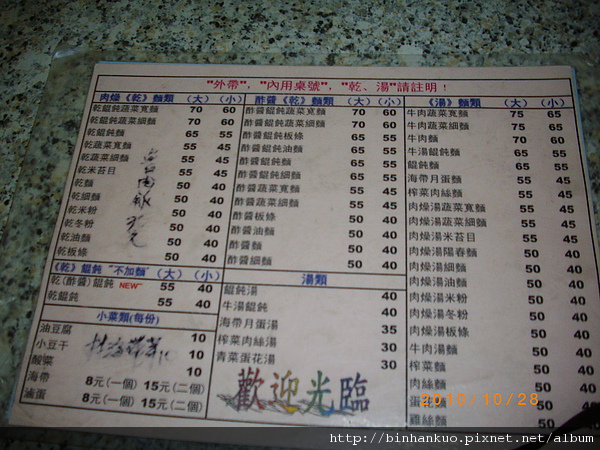 "外帶"，"內用桌號"，"乾、湯"請註明！
肉燥《乾》麵類 （大）（小）
乾餛飩蔬菜寬麵 70 60
乾餛飩蔬菜細麵 70 60
乾餛飩麵 65 55
乾蔬菜寬麵 55 45
乾蔬菜細麵 55 45
乾米苔目 55 45
乾麵 50 40
乾細麵 50 40
乾米粉 50 40
乾冬粉 50 40
乾油麵 50 40
乾板條 50 40
《乾》餛飩"不加麵"（大）（小）
乾(酢醬)餛飩 NEW~ 55 40
乾餛飩 55 40
小菜類(每份)
油豆腐 10
小豆干 10
酸菜 10
海帶 8元(一個) 15元(二個)
滷蛋 8元(一個) 15元(二個)
酢醬《乾》麵類 （大）（小）
酢醬餛飩蔬菜寬麵 70 60
酢醬餛飩蔬菜細麵 70 60
酢醬餛飩板條 65 55
酢醬餛飩油麵 65 55
酢醬餛飩細麵 65 55
酢醬餛飩麵 65 55
酢醬蔬菜寬麵 55 45
酢醬蔬菜細麵 55 45
酢醬板條 50 40
酢醬油麵 50 40
酢醬麵 50 40
酢醬細麵 50 40
湯類
餛飩湯 40
牛湯餛飩 40
海帶月蛋湯 35
榨菜肉絲湯 30
青菜蛋花湯 30
歡迎光臨
《湯》麵類 （大）（小）
牛肉蔬菜寬麵 75 65
牛肉蔬菜細麵 75 65
牛肉麵 70 60
牛湯餛飩麵 65 55
餛飩麵 65 55
海帶月蛋麵 55 45
榨菜肉絲麵 55 45
肉燥湯蔬菜寬麵 55 45
肉燥湯蔬菜細麵 55 45
肉燥湯米苔目 55 45
肉燥湯陽春麵 50 40
肉燥湯細麵 50 40
肉燥湯油麵 50 40
肉燥湯米粉 50 40
肉燥湯冬粉 50 40
肉燥湯板條 50 40
牛肉湯麵 50 40
榨菜麵 50 40
肉絲麵 50 40
蛋花麵 50 40
雞絲麵 50 40
2010/10/28
http://binhankuo.pixnet.net/album